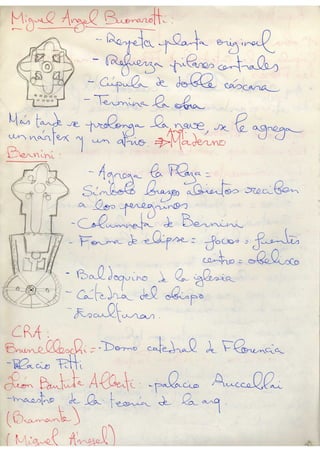 Miguel Angel Buonarotti:
- Respeta planta original
- Refuerza pilares centrales
- Cúpula de doble cáscara
- Termina la obra
Más tarde se prolonga la nave, se le agrega
un nártex y un atrio → Maderno
Bernini:
- Agrega la Plaza =
Símbolo brazos abiertos reciben
a los peregrinos
- Columnata de Bernini
- Forma de elipse = focos = fuentes
centro = obelisco
- Baldaquino de la iglesia
- Cátedra del obispo
- Esculturas.
CRA:
Brunelleschi = - Domo catedral de Florencia
- Palacio Pitti
Leon Bautista Alberti: - palacio Ruccellai
- maestro de la teoría de la arq.
(Bramante)
(Miguel Angel)